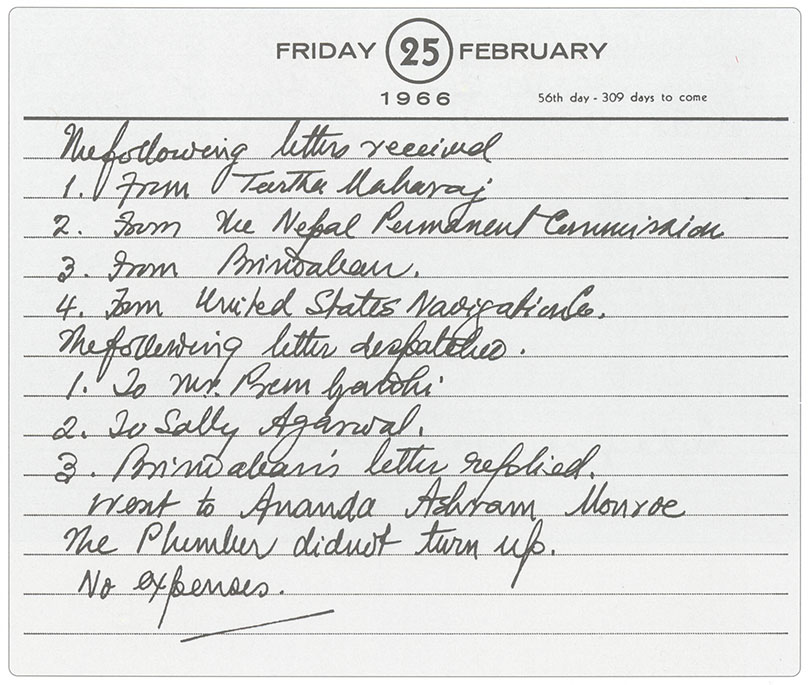 FRIDAY 25 FEBRUARY
1966 56th day - 309 days to come
The following letters received
1. From Tirtha Maharaj
2. From the Nepal Permanent Commission
3. From Brindaban.
4. From United States Navigation Co.
The following letter despatched.
1. To Mr. Prem Gandhi
2. To Sally Agarwal.
3. Brindaban's letter replied.
went to Ananda Ashram Monroe
The Plumber didnot turn up.
No expenses.